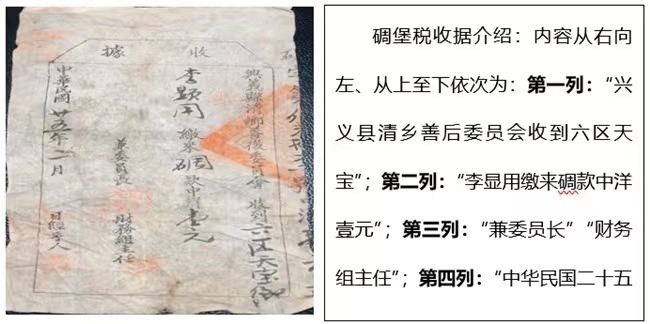 收據
興義縣清鄉善後委員會 收到六区天宝
李顯用 繳來碉款中洋壹元
兼委員長 財務組主任
中華民國廿五年二月 日經手人
碉堡税收据介绍：内容从右向
左、从上至下依次为：第一列：“兴
义县清乡善后委员会收到六区天
宝”；第二列：“李显用缴来碉款中洋
壹元”；第三列：“兼委员长”“财务
组主任”；第四列：“中华民国二十五